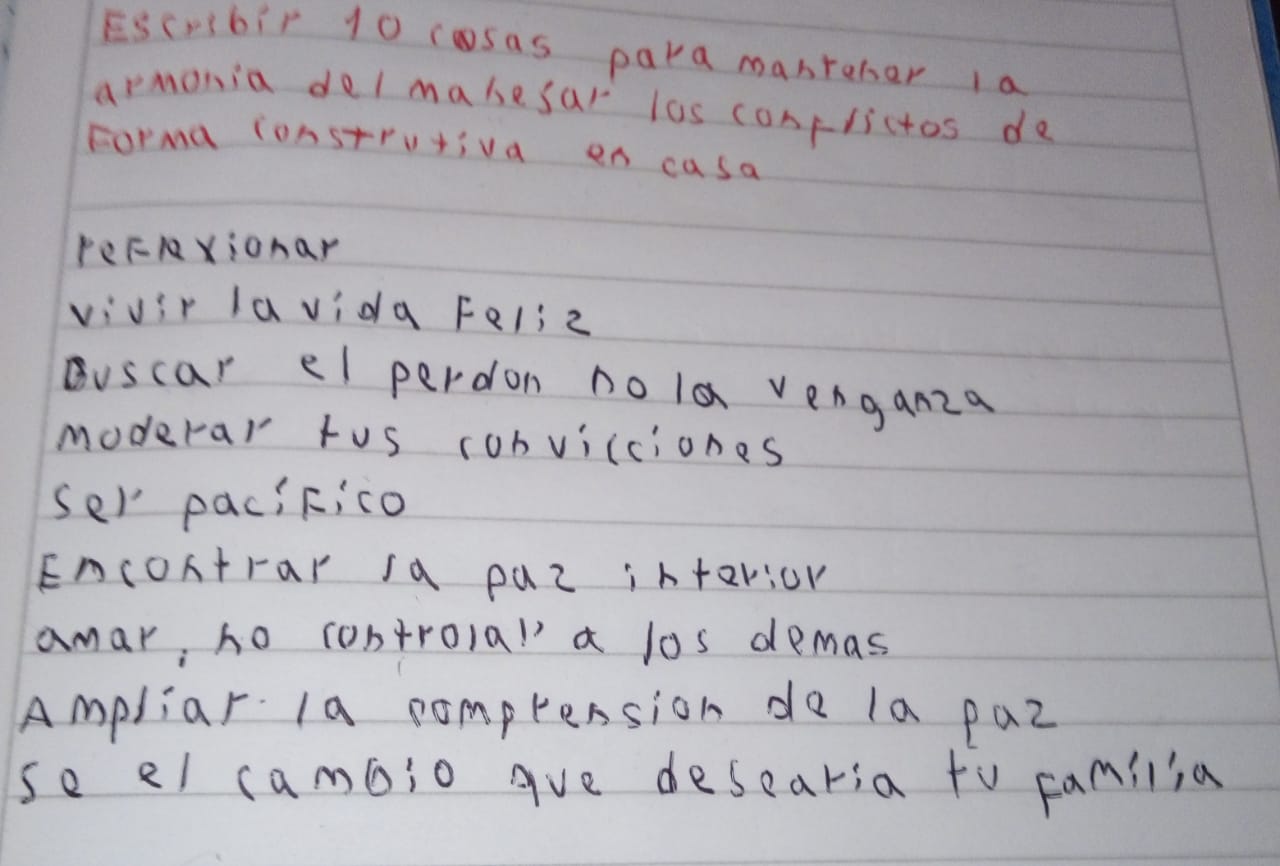 Escribir 10 cosas para mantener la
armonia del manesar los conflictos de
Forma construtiva en casa
reflexionar
vivir la vida Feliz
Buscar el perdon no la venganza
moderar tus convicciones
ser pacífico
Encontrar la paz interior
amar, no controlar a los demas
Ampliar la comprension de la paz
se el cambio que desearia tu familia